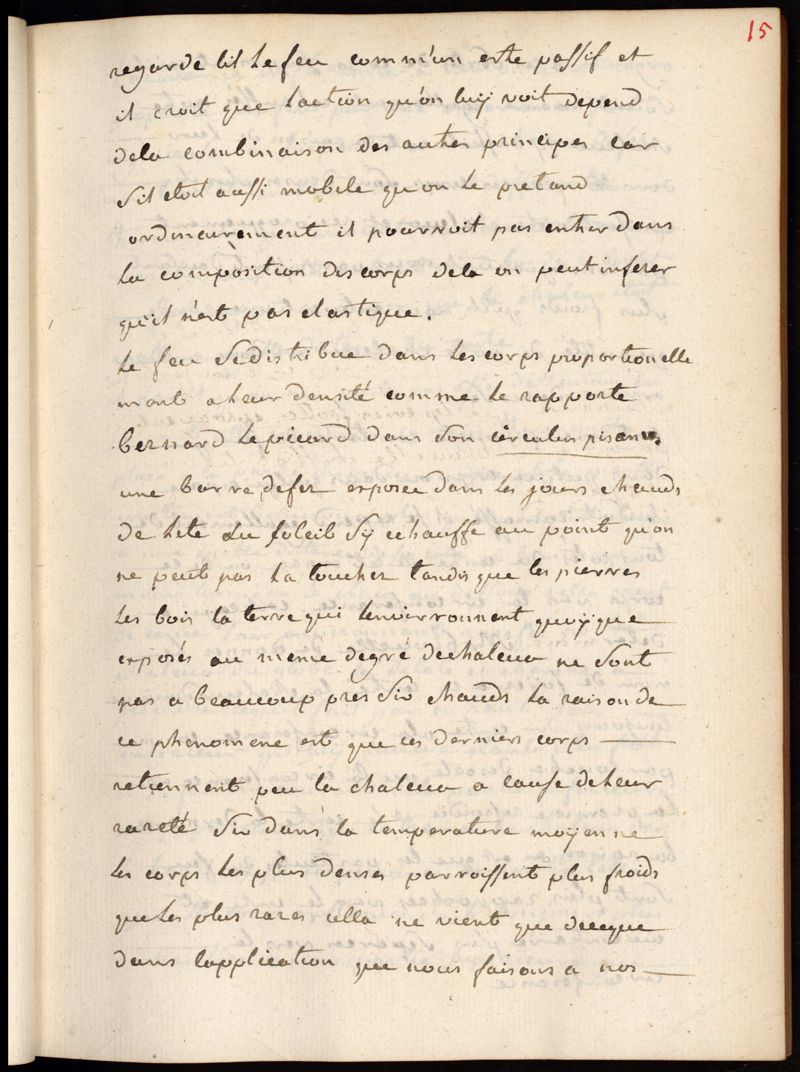 15
regarde til le feu comm'un estre passif et
il croit que l'action qu'on luÿ voit depend
dela combinaison des autres principes car
s'il etoit aussi mobile qu'on le pretand
ordinairement il pourroit pas entrer dans
la composition des corps dela on peut inferer
qu'il n'est pas elastique.
le feu se distribue dans les corps proportionelle
ment a leur densité comme le rapporte
bernard le picard dans son circulus pisanus.
une barre de fer exposée dans les jours chauds
de l'ete au soleil s'ÿ echauffe au point qu'on
ne peut pas la toucher tandis que les pierres
les bois la terre qui l'environnent quoÿque
exposés au meme degré de chaleur ne sont
pas a beaucoup pres si chauds la raison de
ce phenomene est que ces derniers corps
retiennent peu la chaleur a cause de leur
rareté si dans la temperature moÿenne
les corps les plus denses parroissent plus froids
que les plus rares cella ne vient que de ceque
dans l'application que nous faisons a nos